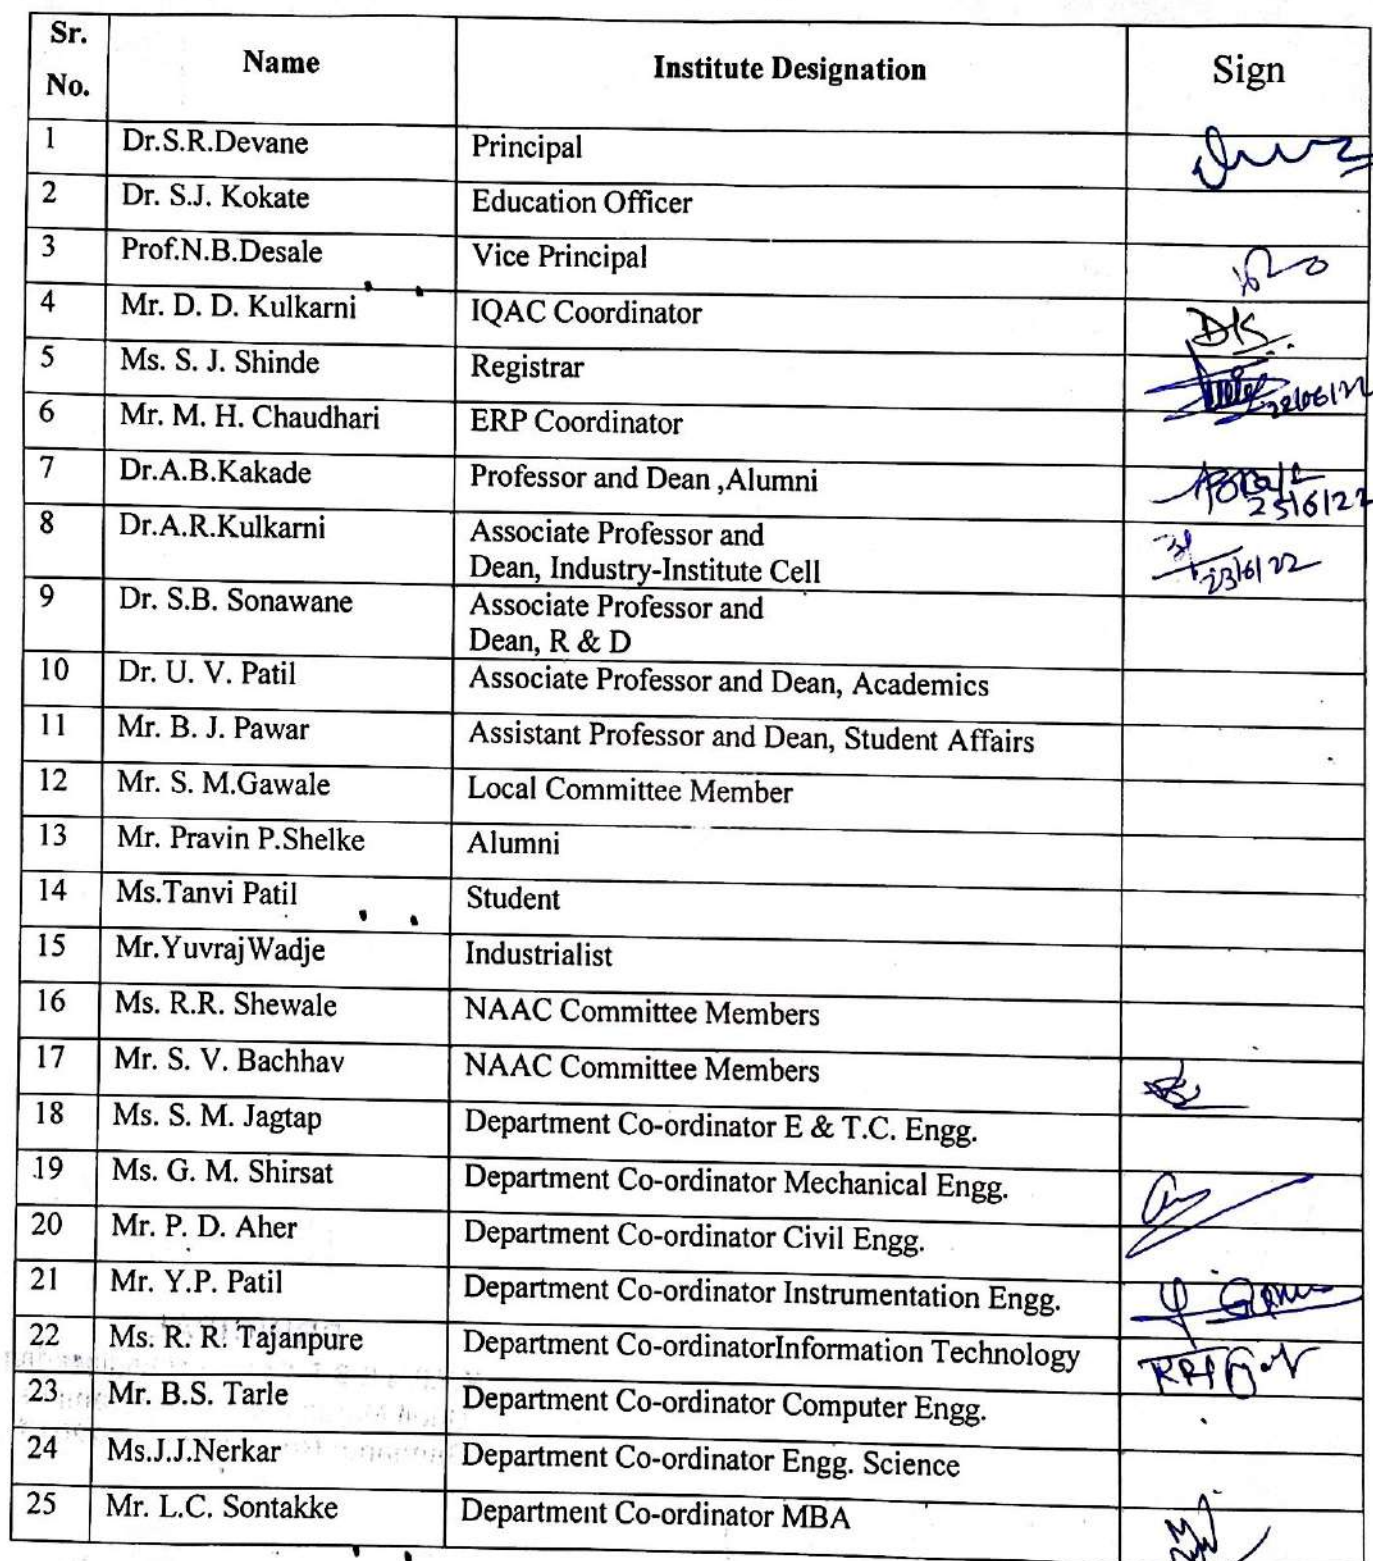 Sr. No. Name Institute Designation Sign
1 Dr.S.R.Devane Principal
2 Dr. S.J. Kokate Education Officer
3 Prof.N.B.Desale Vice Principal
4 Mr. D. D. Kulkarni IQAC Coordinator DK
5 Ms. S. J. Shinde Registrar 22/06/22
6 Mr. M. H. Chaudhari ERP Coordinator
7 Dr.A.B.Kakade Professor and Dean ,Alumni 23/6/22
8 Dr.A.R.Kulkarni Associate Professor and
Dean, Industry-Institute Cell 23/6/22
9 Dr. S.B. Sonawane Associate Professor and
Dean, R & D
10 Dr. U. V. Patil Associate Professor and Dean, Academics
11 Mr. B. J. Pawar Assistant Professor and Dean, Student Affairs
12 Mr. S. M.Gawale Local Committee Member
13 Mr. Pravin P.Shelke Alumni
14 Ms.Tanvi Patil Student
15 Mr.YuvrajWadje Industrialist
16 Ms. R.R. Shewale NAAC Committee Members
17 Mr. S. V. Bachhav NAAC Committee Members
18 Ms. S. M. Jagtap Department Co-ordinator E & T.C. Engg.
19 Ms. G. M. Shirsat Department Co-ordinator Mechanical Engg.
20 Mr. P. D. Aher Department Co-ordinator Civil Engg.
21 Mr. Y.P. Patil Department Co-ordinator Instrumentation Engg.
22 Ms. R. R. Tajanpure Department Co-ordinatorInformation Technology
23 Mr. B.S. Tarle Department Co-ordinator Computer Engg.
24 Ms.J.J.Nerkar Department Co-ordinator Engg. Science
25 Mr. L.C. Sontakke Department Co-ordinator MBA